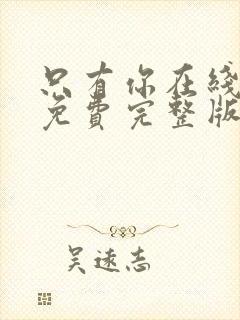 只有你在线
免费完整版
吴远志